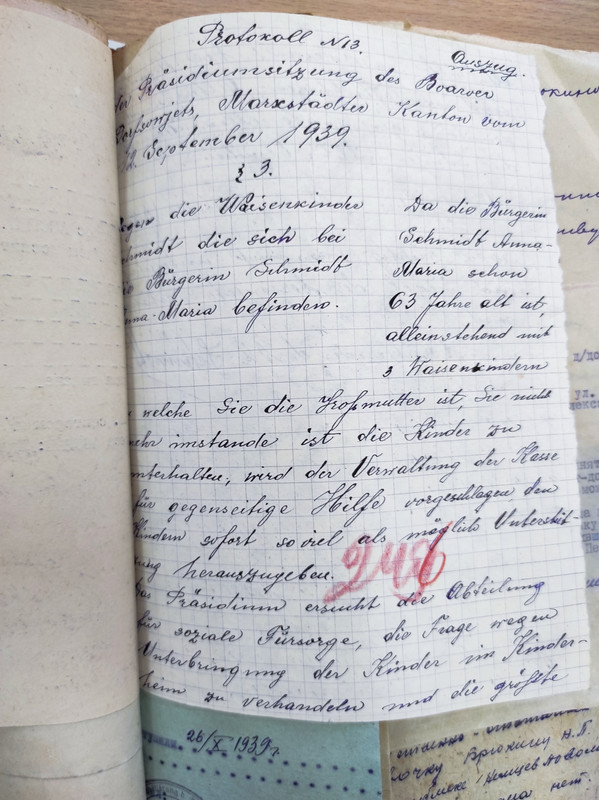 Protokoll N13.
Auszug.
der Präsidiumsitzung des Boaroer
Dorfsowjets, Marxstädter Kanton vom
September 1939.
§ 3.
die Waisenkinder
chmidt die sich bei
Bürgerin Schmidt
nna-Maria befinden.
Da die Bürgerin
Schmidt Anna-
Maria schon
63 Jahre alt ist,
alleinstehend mit
3 Waisenkindern
welche Sie die Großmutter ist, Sie nicht
ehr imstande ist die Kinder zu
unterhalten, wird der Verwaltung der Kasse
für gegenseitige Hilfe vorgeschlagen den
Kindern sofort so viel als möglich Unterstüt-
ung herauszugeben.
246
Das Präsidium ersucht die Abteilung
für soziale Fürsorge, die Frage wegen
Unterbringung der Kinder im Kinder-
heim zu verhandeln und die größte
26/X 1939г.
д/до
ул.
очку Врюкину Н.П.
на нет.